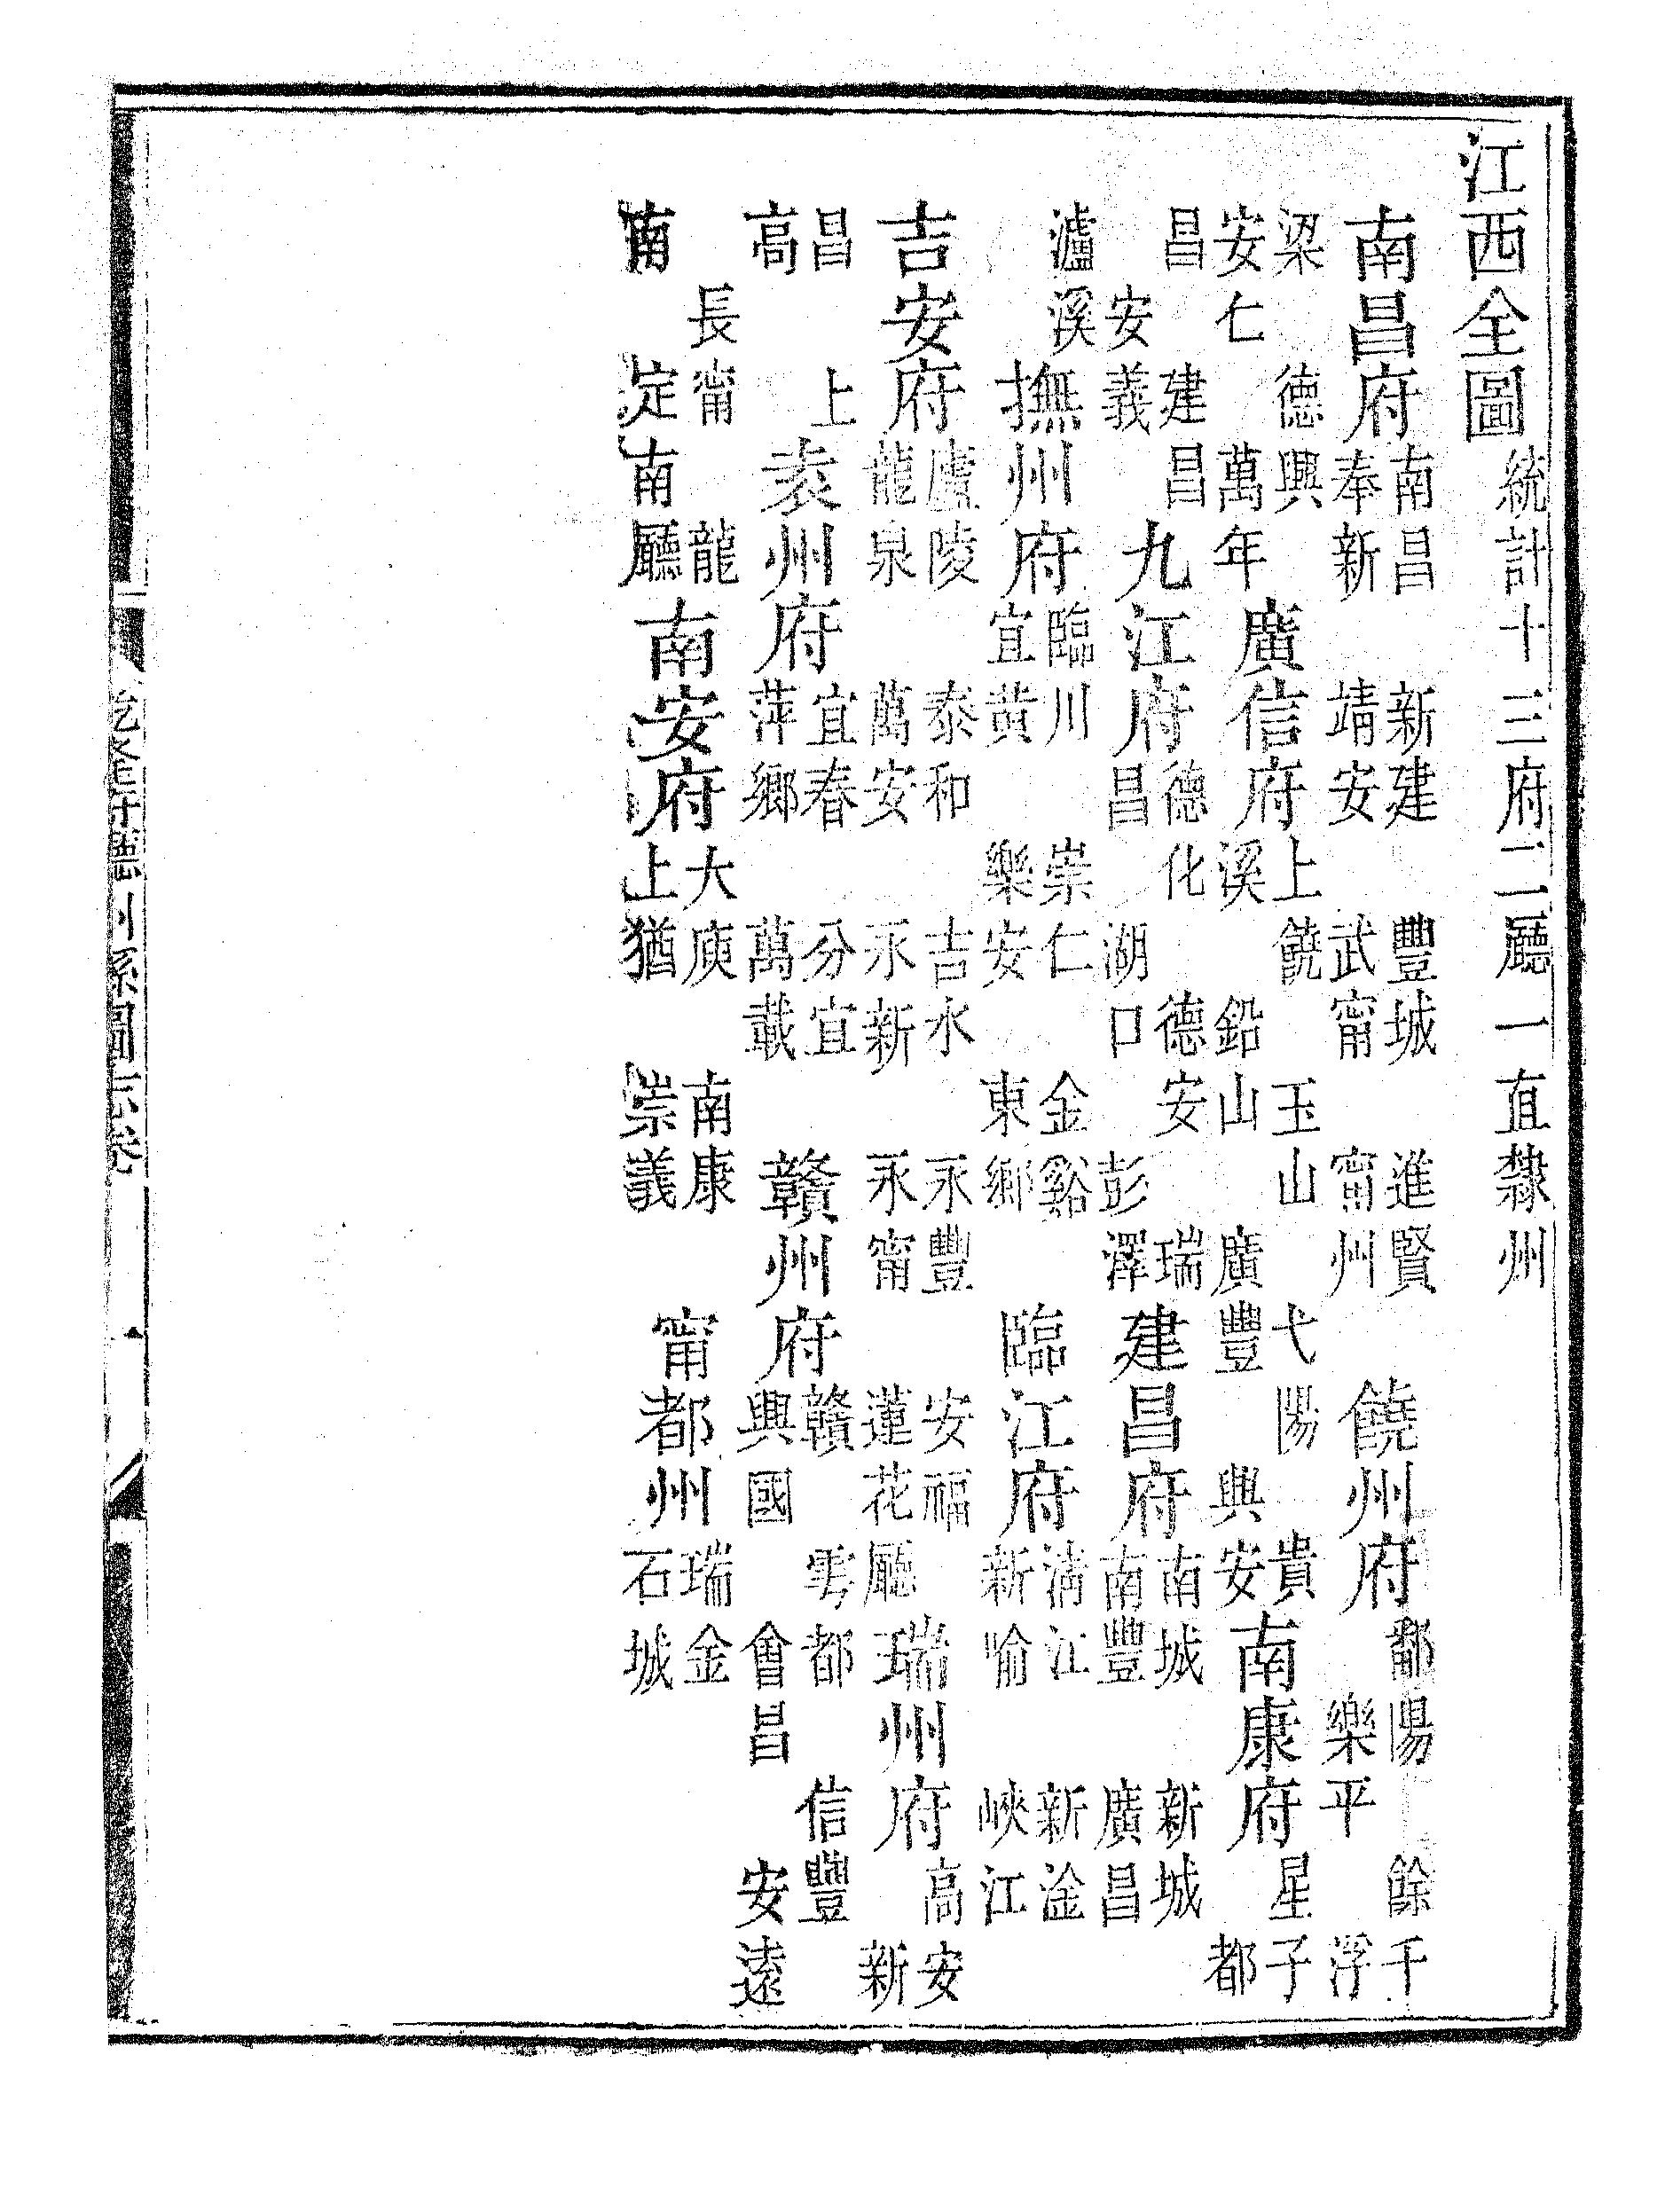 江西全圖 統計十三府二廳一直隸州
南昌府 南昌 新建 豐城 進賢 奉新 靖安 武甯 甯州 饒州府 鄱陽 餘千 樂平 浮
梁 德興 安仁 萬年 廣信府 上饒 玉山 弋陽 貴溪 鉛山 廣豐 興安 南康府 星子 都
昌 建昌 安義 九江府 德化 德安 瑞昌 湖口 彭澤 建昌府 南城 新城 南豐 廣昌
瀘溪 撫州府 臨川 崇仁 金谿 宜黃 樂安 東鄉 臨江府 清江 新淦 新喻 峽江
吉安府 廬陵 泰和 吉水 永豐 安福 龍泉 萬安 永新 永甯 蓮花廳 瑞州府 高安 新
昌 上高 袁州府 宜春 分宜 萍鄉 萬載 贛州府 贛 雩都 信豐 興國 會昌 安遠
長甯 龍南 定南廳 南安府 大庾 南康 上猶 崇義 甯都州 瑞金 石城
州縣圖志卷 一